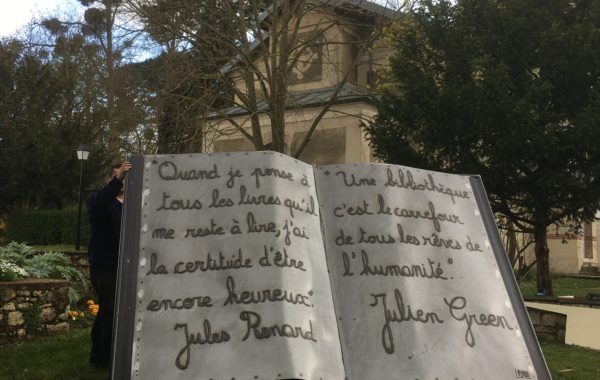 "Quand je pense à
tous les livres qu'il
me reste à lire, j'ai
la certitude d'être
encore heureux".
Jules Renard
"Une bibliothèque
c'est le carrefour
de tous les rêves de
l'humanité".
Julien Green.